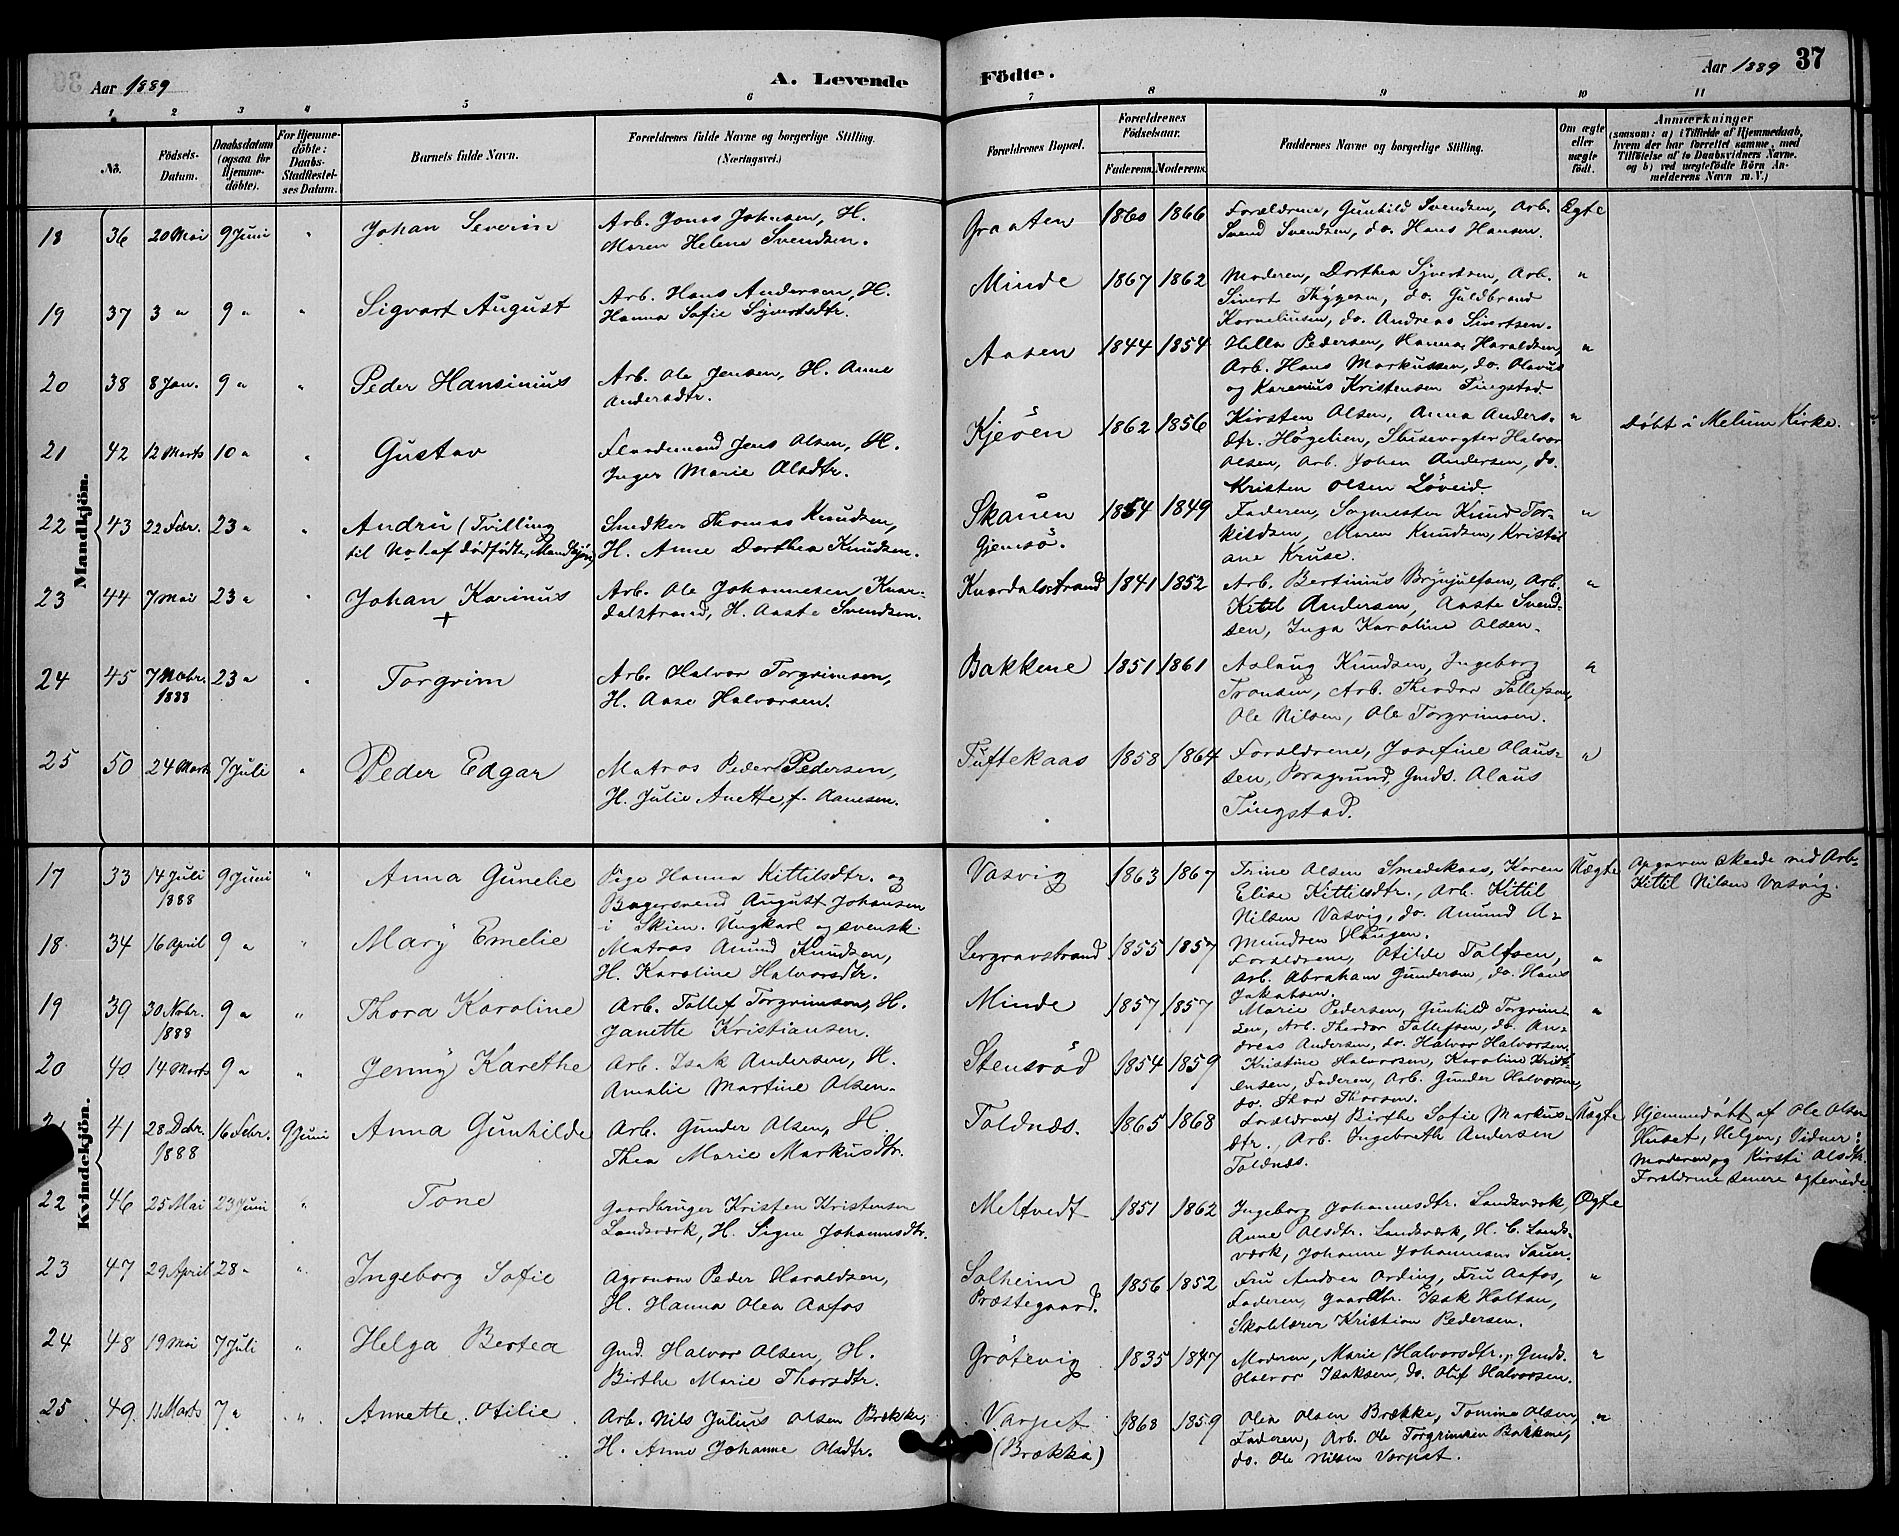 Aar 1889
A. Levende
Födte.
Aar 1889
37
1 2 3 4 5 6 7 8 9 10 11
No.
Födsels-Datum.
Daabsdatum (ogsaa for Hjemme-döbte).
For Hjemme-döbte: Daabs-Stadfæstel-ses Datum.
Barnets fulde Navn.
Forældrenes fulde Navne og borgerlige Stilling.
(Næringsvei.)
Forældrenes Bopæl.
Forældrenes Födselsaar.
Faderens. Moderens.
Faddernes Navne og borgerlige Stilling.
Om ægte eller uægte födt.
Anmærkninger
(saasom: a) i Tilfælde af Hjemmedaab,
hvem der har forrettet samme, med
Tilföielse af to Daabsvidners Navne.
og b) ved uægtefödte Börn An-
melderens Navn m. V.)
Mandkjön.
18 36 20 Mai 9 Juni " Johan Severin
Arb. Jonas Johnsen, H.
Maren Helene Svendsen.
Graaten 1860 1866
Forældrene, Gunhild Svendsen, Arb.
Svend Svendsen, do. Hans Hansen.
Ægte
19 37 3 " 9 " " Sigvart August
Arb. Hans Andersen, H.
Hanna Sofie Syvertsdtr.
Minde 1867 1862
Moderen, Dorthea Syvertsen, Arb.
Sivert Thygesen, do. Guldbrand
Korneliusen, do. Andreas Sivertsen.
"
20 38 8 Jan. 9 " " Peder Hansinius
Arb. Ole Jensen, H. Anne
Andersdtr.
Aasen 1844 1854
Hella Pedersen, Hanna Haraldsen,
Arb. Hans Markussen, do. Olavus
og Karenius Kristensen Tingstad.
"
21 42 12 Marts 10 " " Gustav
Flaademand Jens Olsen, H.
Inger Marie Olsdtr.
Kjeöen 1862 1856
Kirsten Olsen, Anna Anders-
dtr. Högelien, Slusevogter Halvor
Olsen, Arb. Johan Andersen, do.
Kristen Olsen Löveid.
"
Döbt i Melum Kirke.
22 43 22 Febr. 23 " " Andru (Tvilling
til No 1 af dödfödte, Mandkjön)
Snedker Thomas Knudsen,
H. Anne Dorthea Knudsen.
Skauen
Gjemsö.
1854 1849
Faderen, Sagmester Knud Tor-
kildsen, Maren Knudsen, Kristi
ane Kruse.
"
23 44 7 Mai 23 " " Johan Karinus
+
Arb. Ole Johannesen Knar-
dalstrand, H. Aaste Svendsen.
Knardalstrand 1841 1852
Arb. Bertinius Brynjulfsen, Arb.
Kitil Andersen, Aaste Svend-
sen, Inga Karoline Olsen.
"
24 45 7 Novbr.
1888
23 " " Torgrim
Arb. Halvor Torgrimsen,
H. Aase Halvorsen.
Bakkene 1851 1861
Aslaug Knudsen, Ingeborg
Tronsen, Arb. Theodor Tollefsen,
Ole Nilsen, Ole Torgrimsen.
"
25 50 24 Marts 7 Juli " Peder Edgar
Matros Peder Pedersen,
H. Julie Anette, f. Aanesen.
Tuftekaas 1858 1864
Forældrene, Josefine Olaus-
sen, Porsgrund, Gmds. Olaus
Tingstad.
"
Kvindekjön.
17 33 14 Juli
1888
9 Juni " Anna Gunelie
Pige Hanna Kittilsdtr. og
Bagersvend August Johansen
i Skien. Ungkarl og svensk.
Vasvig 1863 1867
Trine Olsen Smedekaas, Karen
Elise Kittilsdtr., Arb. Kittil
Nilsen Vasvig, do. Amund A-
mundsen Haugen.
Uægte
Opgaven skeede ved Arb.
Kittil Nilsen Vasvig.
18 34 16 April 9 " " Mary Emelie
Matros Amund Knudsen,
H. Karoline Halvorsdtr.
Lergravstrand 1855 1857
Forældrene, Otilde Tolfsen,
Arb. Abraham Gundersen, do. Hans
Jakobsen.
"
19 39 30 Novbr.
1888
9 " " Thora Karoline
Arb. Tollef Torgrimsen, H.
Janette Kristiansen.
Minde 1857 1857
Marie Pedersen, Gunhild Torgrim-
sen, Arb. Theodor Tollefsen, do. An-
dreas Andersen, do. Halvor Halvorsen.
"
20 40 14 Marts 9 " " Jenny Karethe
Arb. Isak Andersen, H.
Amalie Martine Olsen.
Stensröd 1854 1859
Kristine Halvorsen, Karoline Krist-
ensen, Faderen, Arb. Gunder Halvorsen,
do. Thor Thorsen.
41 28 Decbr.
1888
16 Febr. 9 Juni Anna Gunhilde
Arb. Gunder Olsen, H.
Thea Marie Markusdtr.
Toldnæs. 1865 1868
Forældrene, Birthe Sofie Markus-
dtr., Arb. Ingebreth Andersen
Toldnæs.
Uægte
Hjemmedöbt af Ole Olsen
Huset, Helgen, Vidner:
Moderen og Kirsti Olsdtr.
Forældrene senere egteviede
22 46 25 Mai 23 Juni " Tone
Gaardbruger Kristen Kristensen
Landsværk, H. Signe Johannesdtr.
Meltvedt 1851 1862
Ingeborg Johannesdtr. Landsværk,
Anne Olsdtr. Landsværk, H. C. Lands-
værk, Johanne Johannesen Sauer.
Ægte
23 47 29 April 28 " " Ingeborg Sofie
Agronom Peder Haraldsen,
H. Hanna Olea Aafos
Solheim
Præstegaard.
1856 1852
Fru Andrea Ording, Fru Aafos,
Faderen, Gaardbr. Isak Holtan,
Skolelærer Kristian Pedersen.
"
24 48 19 Mai 7 Juli " Helga Bertea
Gmd. Halvor Olsen, H.
Birthe Marie Thorsdtr.
Grötevig 1835 1847
Moderen, Marie Halvorsdtr., Gmds.
Halvor Isaksen, do. Oluf Halvorsen.
"
25 49. 11 Marts 7 " " Annette Otilie
Arb. Nils Julius Olsen Brække,
H. Anne Johanne Olsdtr.
Varpet
(Brækka)
1868 1859
Olea Olsen Brække, Tomine Olsen,
Faderen, Arb. Ole Torgrimsen Bakkene,
do. Ole Nilsen Værpet.
"